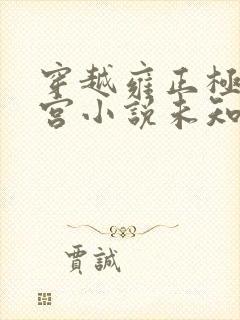 穿越雍正極
宮小説未知
賈誠